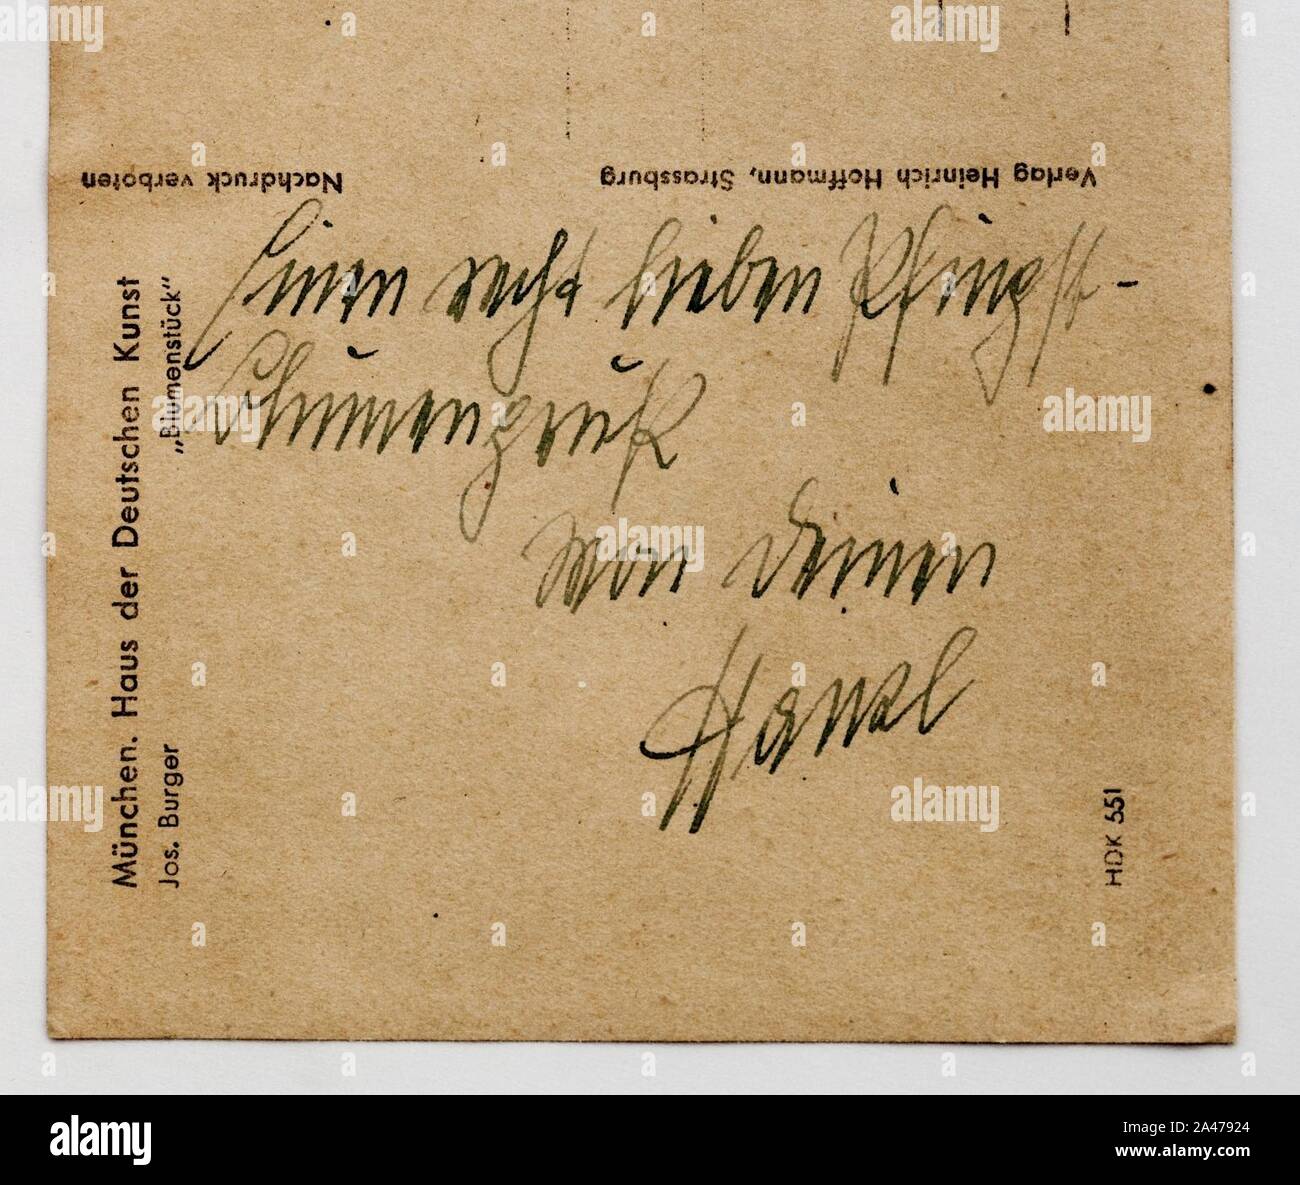 Nachdruck verboten
Verlag Heinrich Hoffmann, Strassburg
Einen recht lieben Pfingst-
Blumengruß
von Deinem
Hansl
München. Haus der Deutschen Kunst
Jos. Burger „Blumenstück“
HDK 551
alamy
Image ID: 2A47924
www.alamy.com